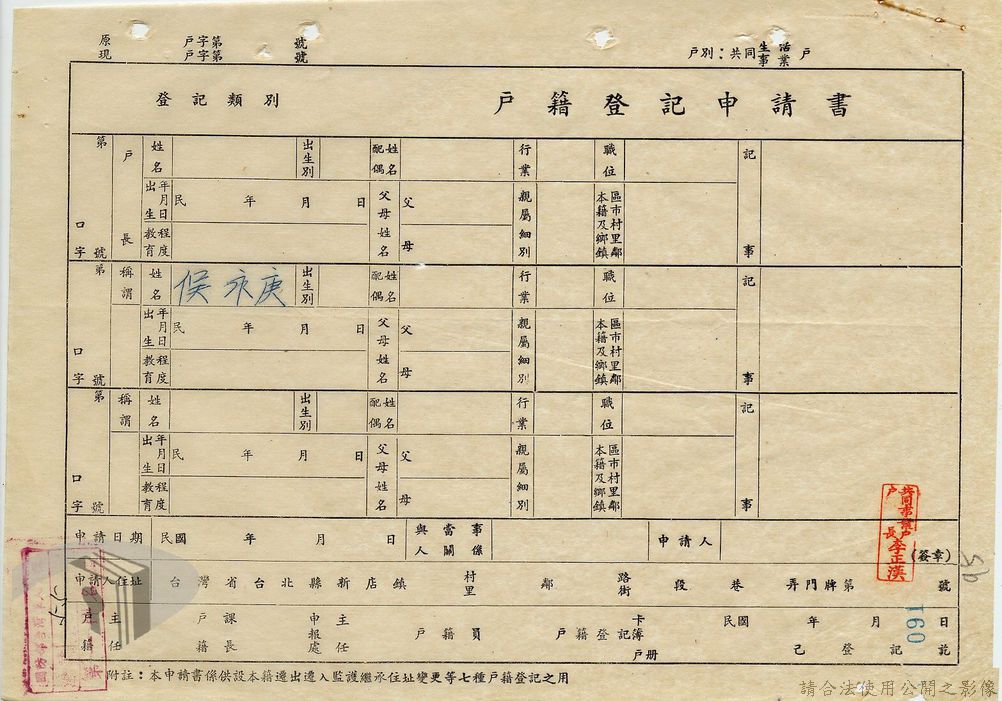 原 戶字第 號
現 戶字第 號
戶別：共同生活事業戶
登記類別 戶籍登記申請書
第 口字 號 戶長 姓名 出生別 配偶姓名 行業 職位 記事
出生年月日 民 年 月 日 父母姓名 父 母 親屬細別 本籍及鄉鎮區市村里鄰
教育程度
第 口字 號 稱謂 姓名 侯永庚 出生別 配偶姓名 行業 職位 記事
出生年月日 民 年 月 日 父母姓名 父 母 親屬細別 本籍及鄉鎮區市村里鄰
教育程度
第 口字 號 稱謂 姓名 出生別 配偶姓名 行業 職位 記事
出生年月日 民 年 月 日 父母姓名 父 母 親屬細別 本籍及鄉鎮區市村里鄰
教育程度
申請日期 民國 年 月 日 與當事人關係 申請人 (簽章)
共同事業戶
戶長李正漢
95
申請人住址 台灣省台北縣新店鎮 村里 鄰 路街 段 巷 弄門牌第 號
戶籍主任 戶籍課長 申報處主任 戶籍員 戶籍登記卡簿戶册 民國 年 月 日
已登記訖
160
附註：本申請書係供設本籍遷出遷入監護繼承住址變更等七種戶籍登記之用
請合法使用公開之影像